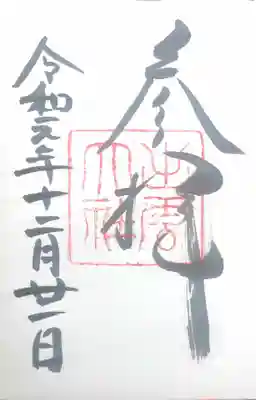 参拝
令和元年十二月廿一日